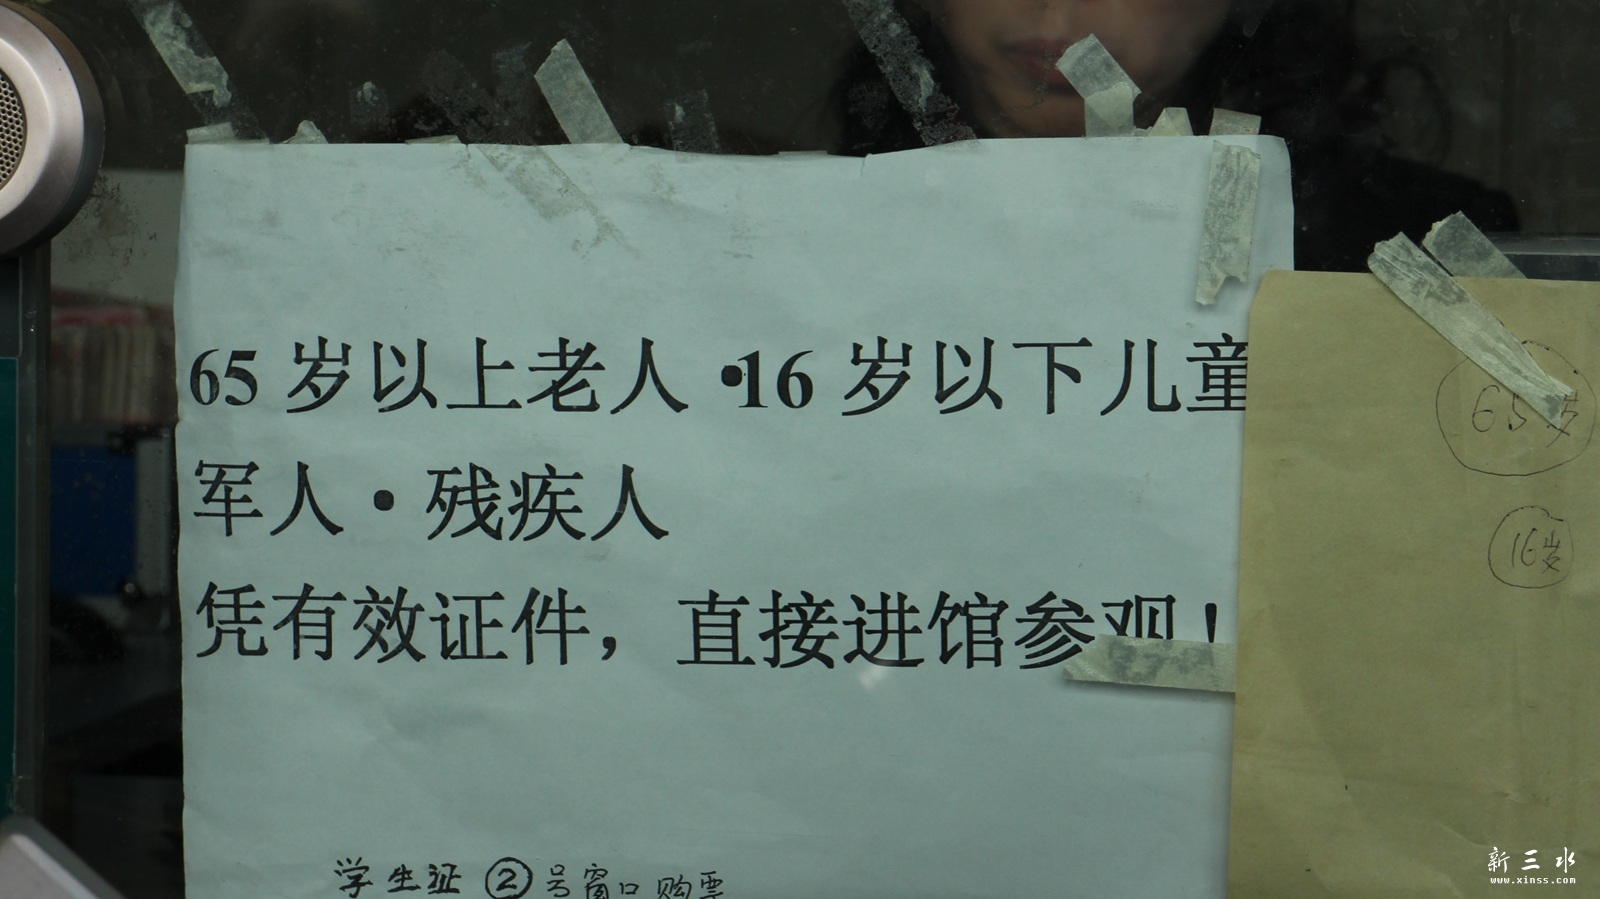 65 岁以上老人·16 岁以下儿童
军人·残疾人
凭有效证件，直接进馆参观！
学生证 ② 号窗口购票
65岁
16岁
新三水
www.xinss.com